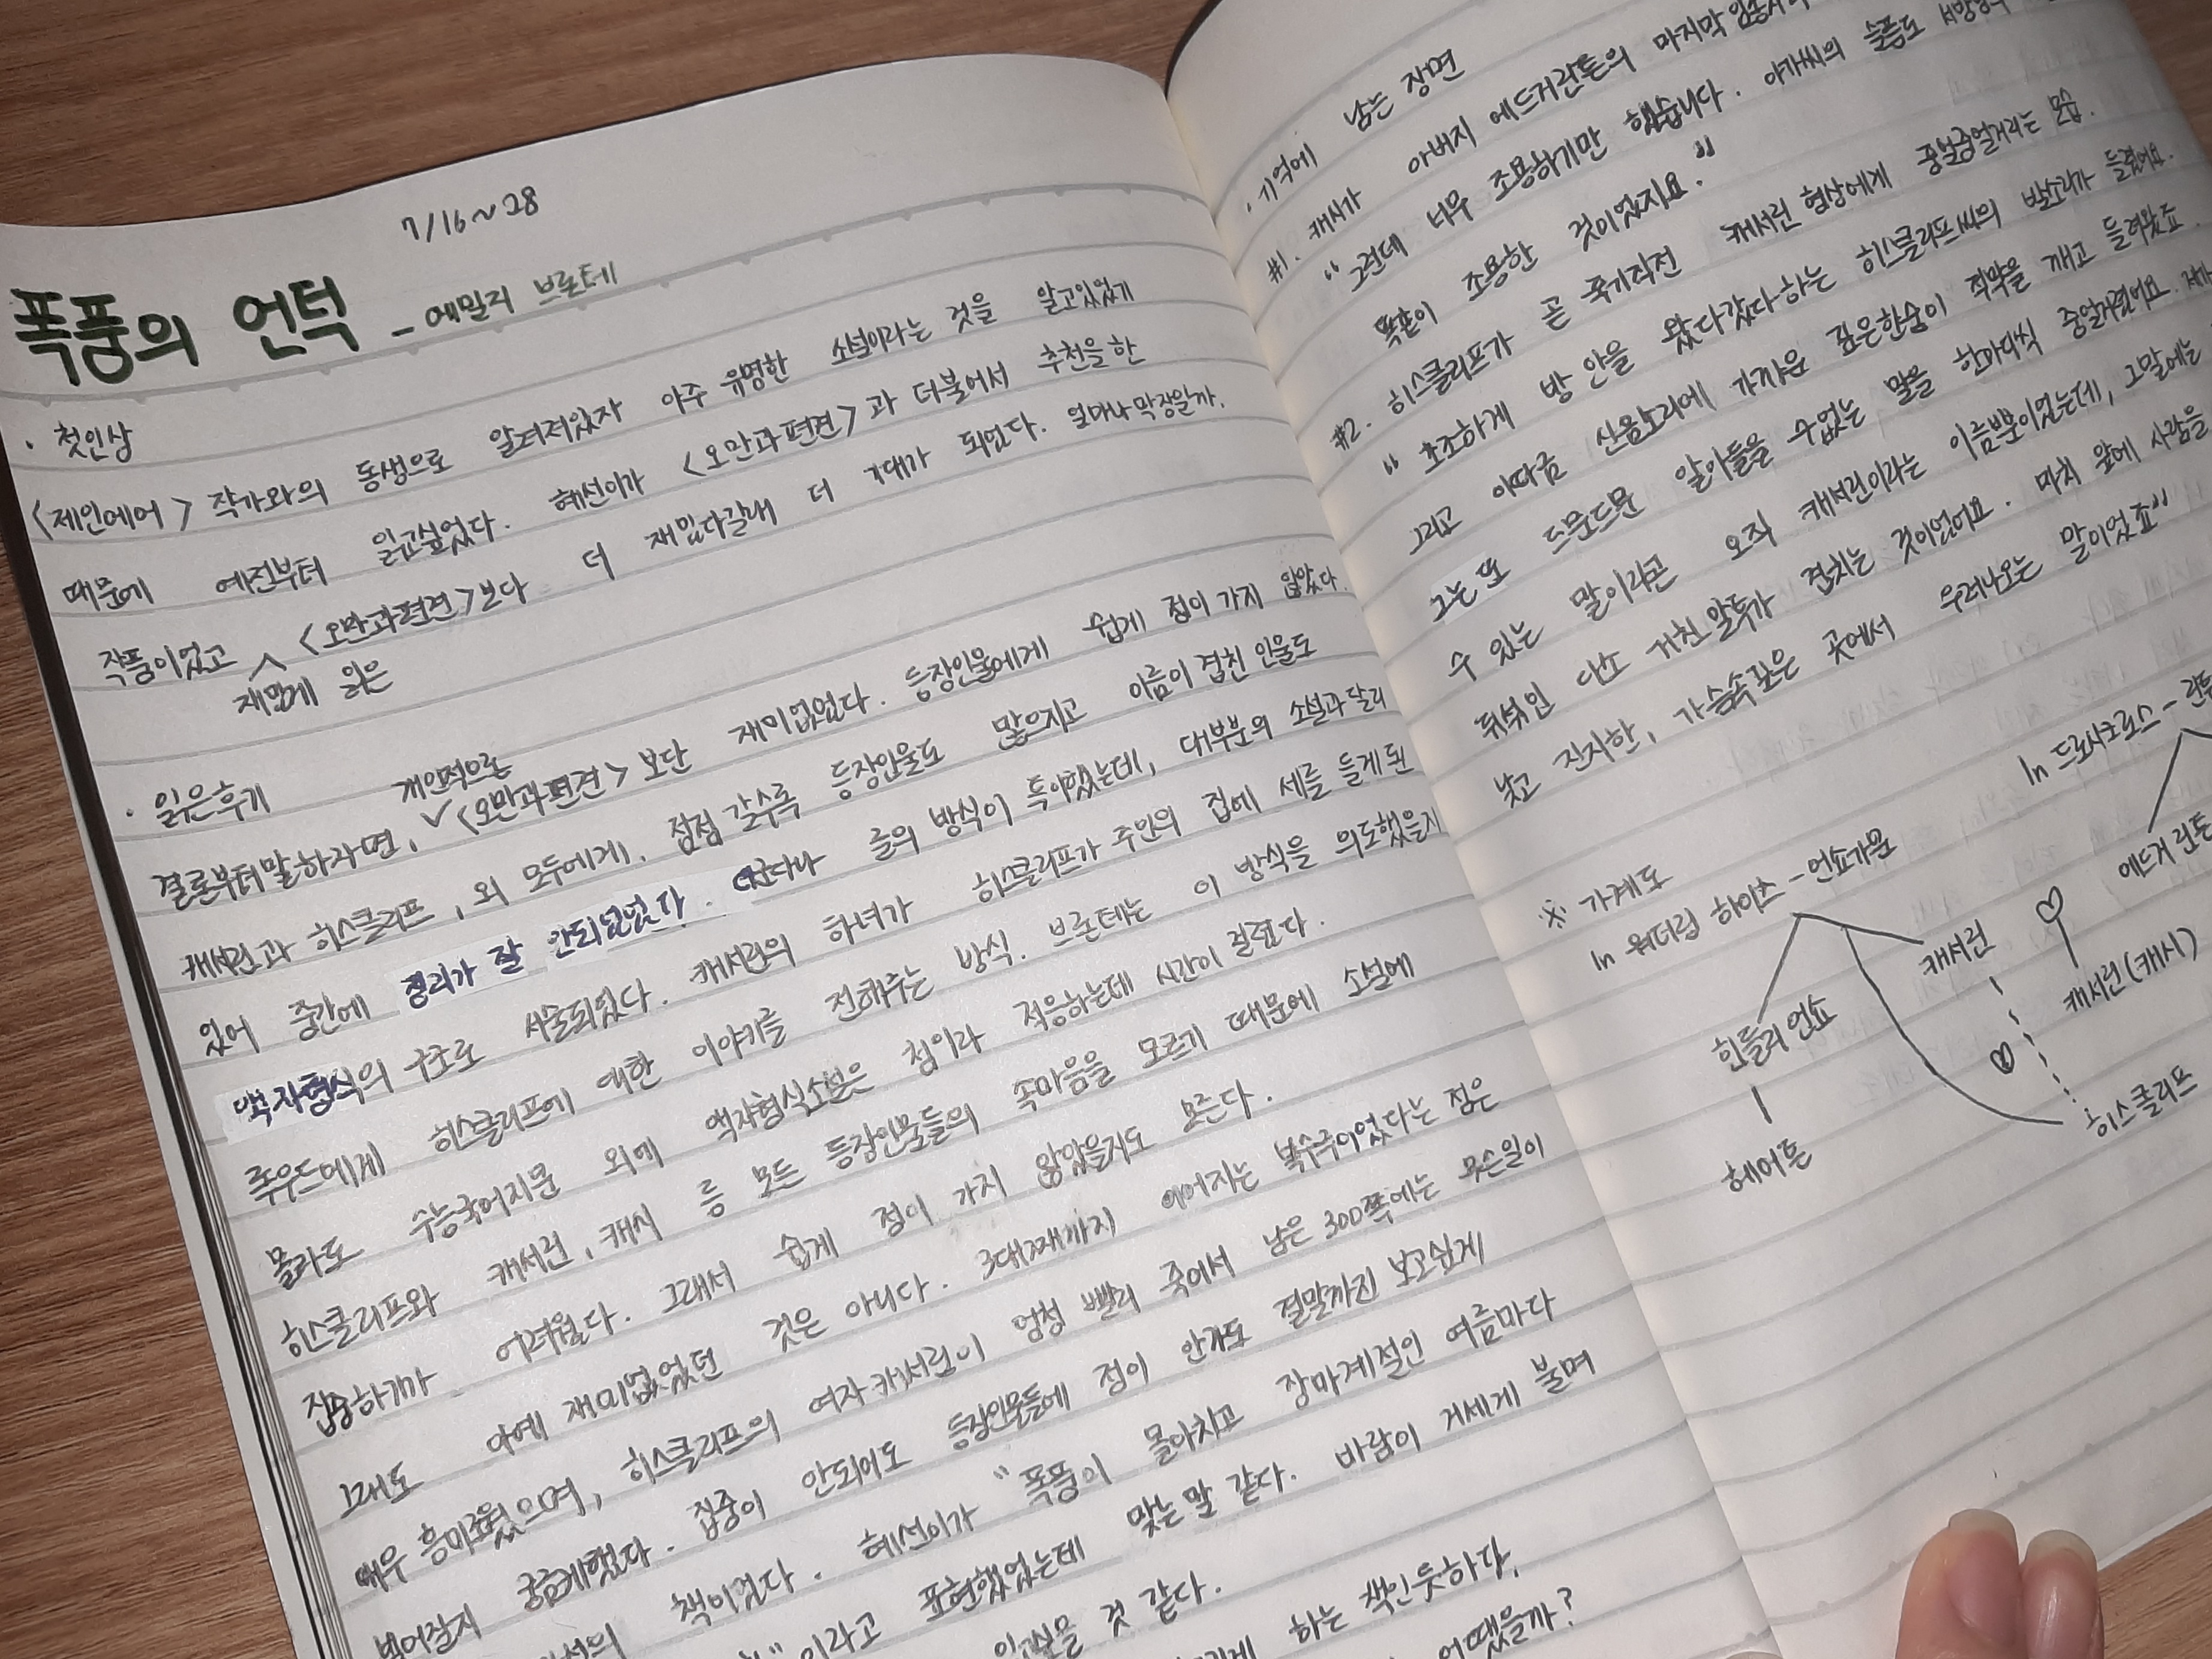 7/16~28
폭풍의 언덕 - 에밀리 브론테
· 첫인상
<제인에어> 작가와의 동생으로 알려져있자 아주 유명한 소설이라는 것을 알고있었기
때문에 예전부터 읽고싶었다. 혜선이가 <오만과편견>과 더불어서 추천을 한
작품이었고 ∧ <오만과편견>보다 더 재밌다길래 더 기대가 되었다. 얼마나 막장일까.
재밌게 읽은
· 읽은후기
개인적으로
결론부터말하자면, ∨<오만과편견> 보단 재미없었다. 등장인물에게 쉽게 정이 가지 않았다.
캐서린과 히스클리프, 외 모두에게. 점점 갈수록 등장인물도 많으지고 이름이 겹친 인물도
있어 중간에 정리가 잘 안되었었다. 글의 방식이 특이했는데, 대부분의 소설과 달리
액자형식의 구조로 서술되었다. 캐서린의 하녀가 히스클리프가 주인의 집에 세를 들게 된
록우드에게 히스클리프에 대한 이야기를 전해주는 방식. 브론테는 이 방식을 의도했을지
몰라도 수능국어지문 외에 액자형식소설은 첨이라 적응하는데 시간이 걸렸다.
히스클리프와 캐서린, 캐시 등 모든 등장인물들의 속마음을 모르기 때문에 소설에
집중하기가 어려웠다. 그래서 쉽게 정이 가지 않았을지도 모른다.
그래도 아예 재미없었던 것은 아니다. 3대째까지 이어지는 복수극이었다는 점은
매우 흥미로웠으며, 히스클리프의 여자 캐서린이 엄청 빨리 죽어서 남은 300쪽에는 무슨일이
벌어질지 궁금케했다. 집중이 안되어도 등장인물들에 정이 안가도 결말까진 보고싶게
책이었다. 혜선이가 "폭풍이 몰아치고 장마계절인 여름마다
"이라고 표현했었는데 맞는 말 같다. 바람이 거세게 불며
것 같다.
하는 책인듯하다.
어땠을까?
· 기억에 남는 장면
#1. 캐시가 아버지 에드거린튼의 마지막
"그런데 너무 조용하기만 했습니다. 아가씨의 슬픔도
똑같이 조용한 것이었지요."
#2. 히스클리프가 곧 죽기직전 캐서린 형상에게 중얼중얼거리는 모습.
"초조하게 방 안을 왔다갔다하는 히스클리프씨의 발소리가 들렸어요.
그리고 이따금 신음소리에 가까운 깊은한숨이 적막을 깨고 들려왔죠.
그는 또 드문드문 알아들을 수없는 말을 한마디씩 중얼거렸어요.
수 있는 말이라곤 오직 캐서린이라는 이름뿐이었는데, 그말에는
뒤섞인 다소 거친 말투가 겹치는 것이었어요. 마치 앞에 사람을
낮고 진지한, 가슴속깊은 곳에서 우러나오는 말이었죠"
※ 가계도
In 워더링 하이츠 - 언쇼가문
In 드로시크로스 -
힌들리 언쇼
캐서린
에드거 린튼
♡
캐서린(캐시)
♡
히스클리프
헤어튼